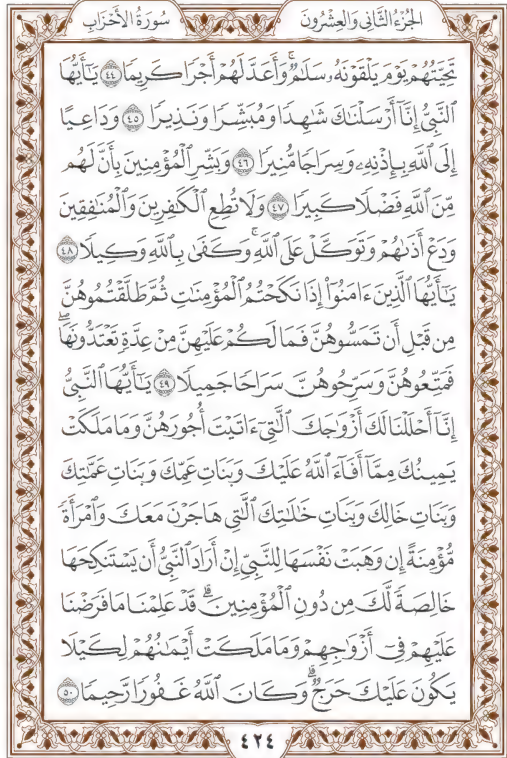 الجُزْءُ الثَّانِي وَالْعِشْرُونَ
سُورَةُ الأَحْزَابِ
تَحِيَّتُهُمْ يَوْمَ يَلْقَوْنَهُۥ سَلَٰمٌ ۚ وَأَعَدَّ لَهُمْ أَجْرًا كَرِيمًا ٤٤ يَٰٓأَيُّهَا
ٱلنَّبِىُّ إِنَّآ أَرْسَلْنَٰكَ شَٰهِدًا وَمُبَشِّرًا وَنَذِيرًا ٤٥ وَدَاعِيًا
إِلَى ٱللَّهِ بِإِذْنِهِۦ وَسِرَاجًا مُّنِيرًا ٤٦ وَبَشِّرِ ٱلْمُؤْمِنِينَ بِأَنَّ لَهُم
مِّنَ ٱللَّهِ فَضْلًا كَبِيرًا ٤٧ وَلَا تُطِعِ ٱلْكَٰفِرِينَ وَٱلْمُنَٰفِقِينَ
وَدَعْ أَذَىٰهُمْ وَتَوَكَّلْ عَلَى ٱللَّهِ ۚ وَكَفَىٰ بِٱللَّهِ وَكِيلًا ٤٨
يَٰٓأَيُّهَا ٱلَّذِينَ ءَامَنُوٓا۟ إِذَا نَكَحْتُمُ ٱلْمُؤْمِنَٰتِ ثُمَّ طَلَّقْتُمُوهُنَّ
مِن قَبْلِ أَن تَمَسُّوهُنَّ فَمَا لَكُمْ عَلَيْهِنَّ مِنْ عِدَّةٍ تَعْتَدُّونَهَا ۖ
فَمَتِّعُوهُنَّ وَسَرِّحُوهُنَّ سَرَاحًا جَمِيلًا ٤٩ يَٰٓأَيُّهَا ٱلنَّبِىُّ
إِنَّآ أَحْلَلْنَا لَكَ أَزْوَٰجَكَ ٱلَّٰتِىٓ ءَاتَيْتَ أُجُورَهُنَّ وَمَا مَلَكَتْ
يَمِينُكَ مِمَّآ أَفَآءَ ٱللَّهُ عَلَيْكَ وَبَنَاتِ عَمِّكَ وَبَنَاتِ عَمَّٰتِكَ
وَبَنَاتِ خَالِكَ وَبَنَاتِ خَٰلَٰتِكَ ٱلَّٰتِى هَاجَرْنَ مَعَكَ وَٱمْرَأَةً
مُّؤْمِنَةً إِن وَهَبَتْ نَفْسَهَا لِلنَّبِىِّ إِنْ أَرَادَ ٱلنَّبِىُّ أَن يَسْتَنكِحَهَا
خَالِصَةً لَّكَ مِن دُونِ ٱلْمُؤْمِنِينَ ۗ قَدْ عَلِمْنَا مَا فَرَضْنَا
عَلَيْهِمْ فِىٓ أَزْوَٰجِهِمْ وَمَا مَلَكَتْ أَيْمَٰنُهُمْ لِكَيْلَا
يَكُونَ عَلَيْكَ حَرَجٌ ۗ وَكَانَ ٱللَّهُ غَفُورًا رَّحِيمًا ٥٠
٤٢٤